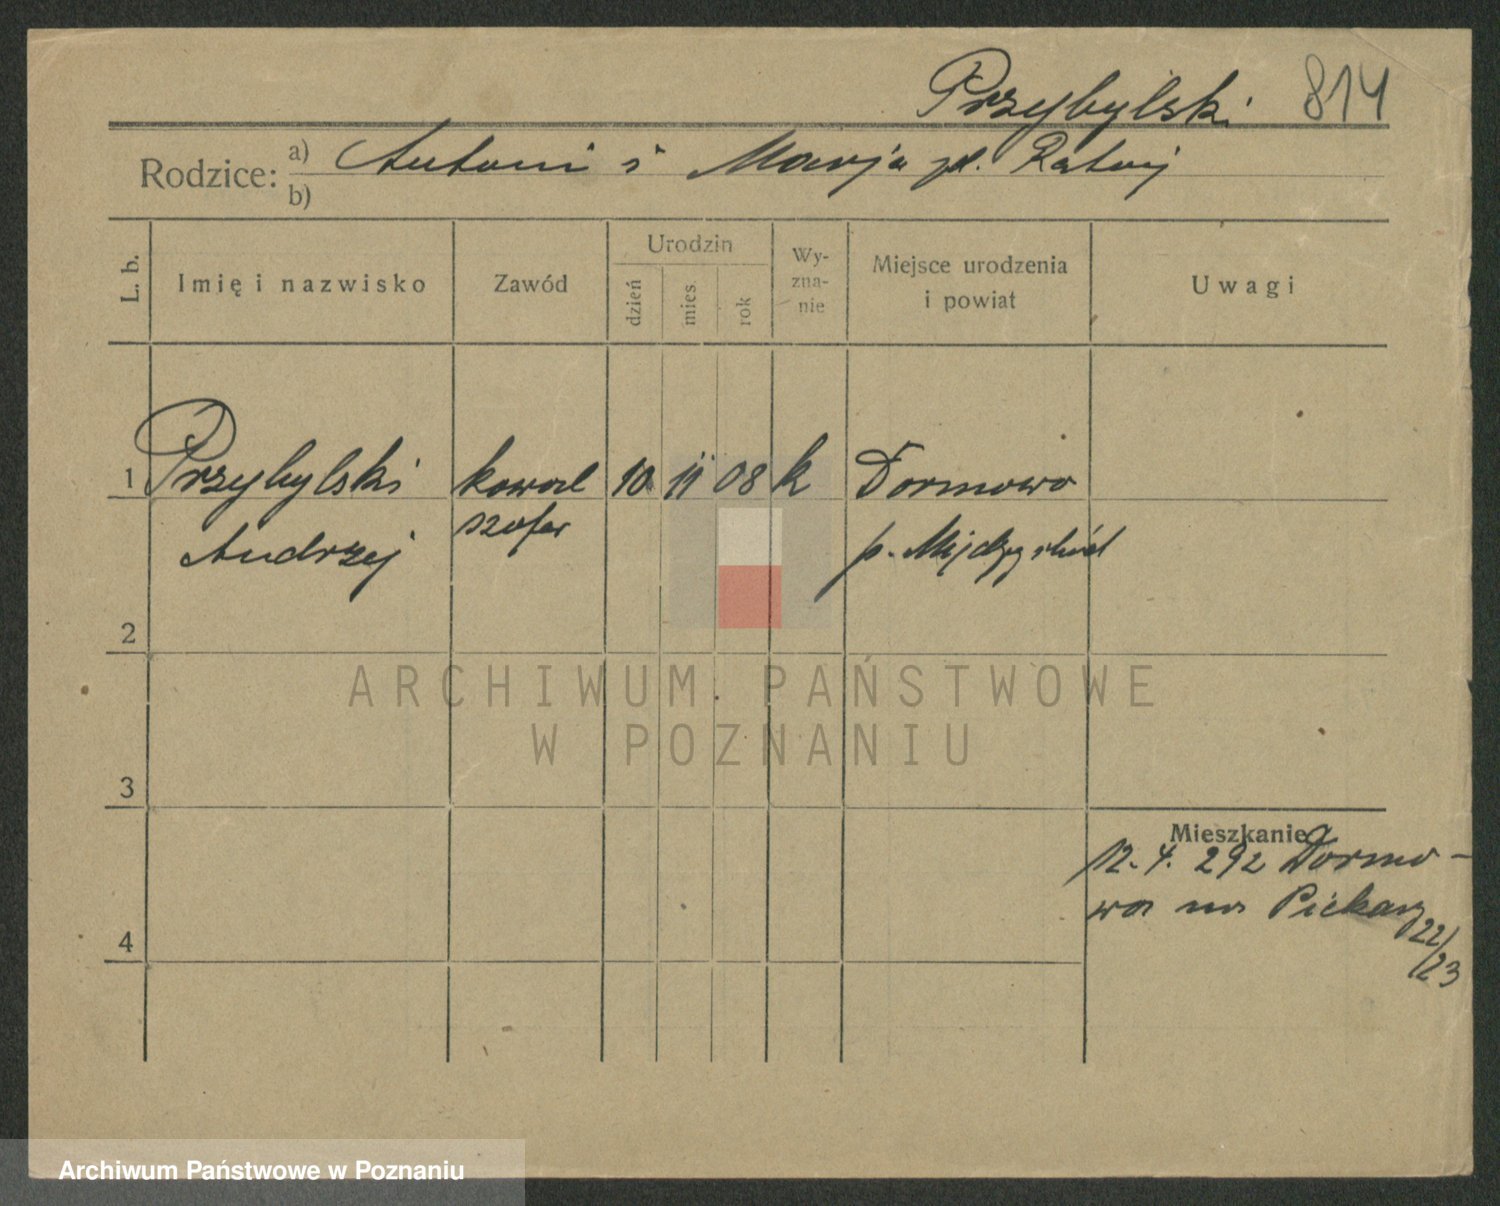 Przybylski 814
Rodzice: a) Antoni i Marja zd. Rataj
b)
L. b. Imię i nazwisko Zawód Urodzin dzień mies. rok Wy-zna-nie Miejsce urodzenia i powiat Uwagi
1 Przybylski kowal 10 11 08 k Dormowo
Andrzej szofer p. Międzychód
2
3
Mieszkanie
12. 4. 292 Dormo-
wa na Piekary
22/23
4
ARCHIWUM PAŃSTWOWE
W POZNANIU
Archiwum Państwowe w Poznaniu